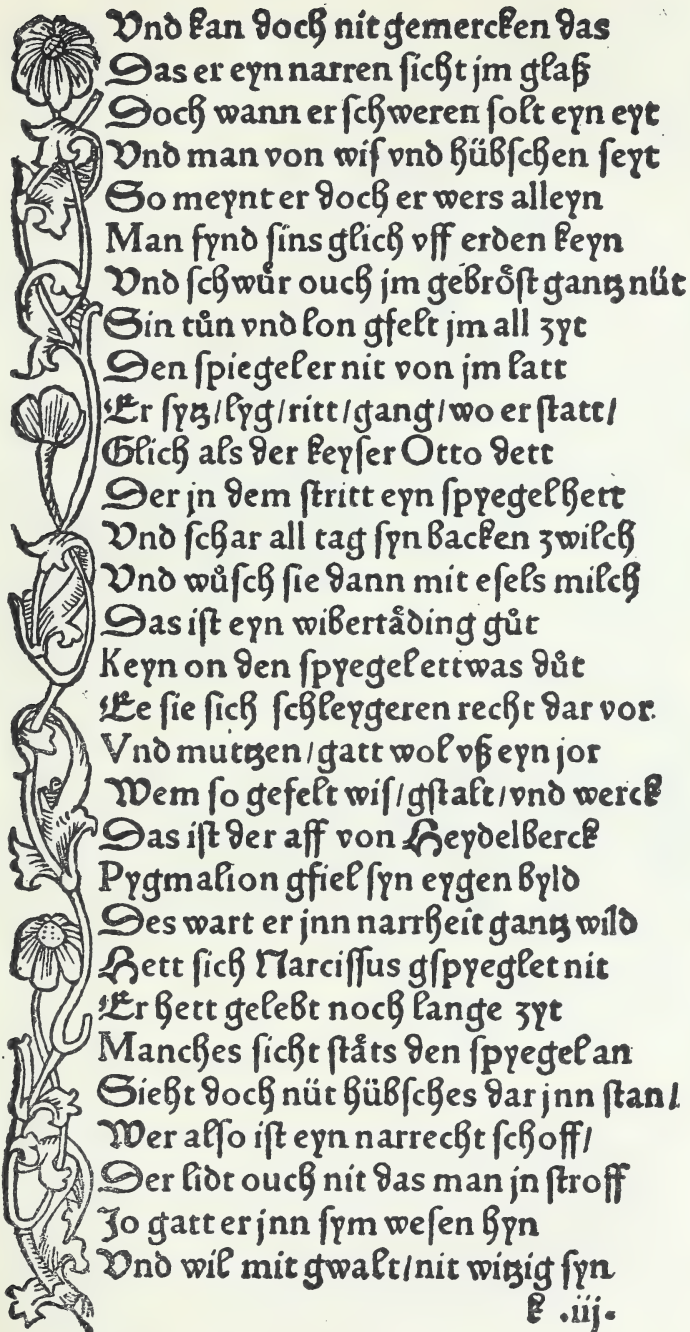 Vnd kan doch nit gemercken das
Das er eyn narren sicht jm glaß
Doch wann er schweren solt eyn eyt
Vnd man von wis vnd hübschen seyt
So meynt er doch er wers alleyn
Man fynd sins glich vff erden keyn
Vnd schwuͤr ouch jm gebroͤst gantz nüt
Sin tuͦn vnd lon gfelt jm all zyt
Den spiegel er nit von jm latt
Er sytz/lyg/ritt/gang/wo er statt/
Glich als der keyser Otto dett
Der jn dem stritt eyn spyegel hett
Vnd schar all tag syn backen zwilch
Vnd wuͤsch sie dann mit esels milch
Das ist eyn wibertaͤding guͦt
Keyn on den spyegel ettwas duͦt
Ee sie sich schleygeren recht dar vor.
Vnd mutzen/gatt wol vß eyn jor
Wem so gefelt wis/gstalt/vnd werck
Das ist der aff von Heydelberck
Pygmalion gfiel syn eygen byld
Des wart er jnn narrheit gantz wild
Hett sich Narcissus gspyeglet nit
Er hett gelebt noch lange zyt
Manches sicht staͤts den spyegel an
Sieht doch nüt hübsches dar jnn stan/
Wer also ist eyn narrecht schoff/
Der lidt ouch nit das man jn stroff
Jo gatt er jnn sym wesen hyn
Vnd wil mit gwalt/nit witzig syn
k .iij.